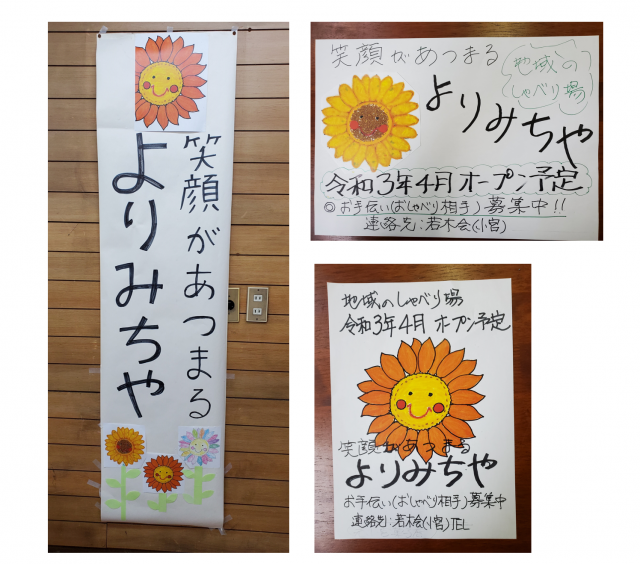 笑顔があつまる
よりみちや
笑顔があつまる
地域の
しゃべり場
よりみちや
令和3年4月オープン予定
◎お手伝い(おしゃべり相手)募集中!!
連絡先:若木会(小宮)
地域のしゃべり場
令和3年4月オープン予定
笑顔があつまる
よりみちや
お手伝い(おしゃべり相手)募集中
連絡先:若木会(小宮)TEL